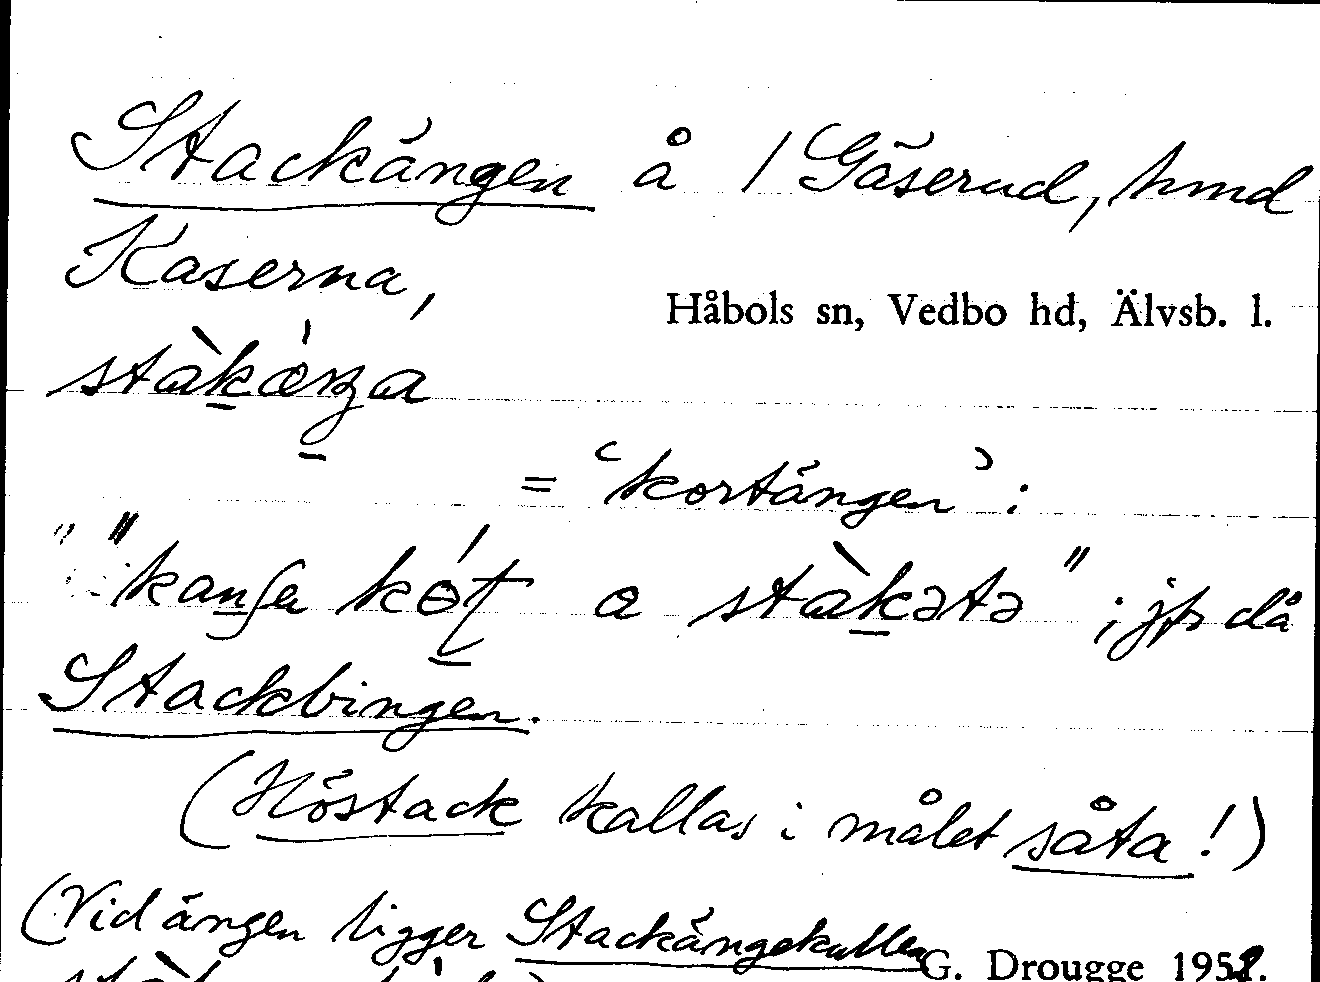 Stackängen å 1 Gäserud, hmd
Kaserna,
Håbols sn, Vedbo hd, Älvsb. l.
= 'kortängen' :
a ; jfr då
Stackbingen.
(Höstack kallas i målet såta !)
(Vid ängen ligger Stackängekullen
G. Drougge 1952.